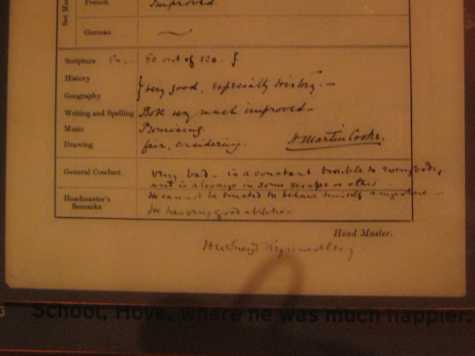 French Improved.
German
Scripture 60 out of 120.
History
Geography } Very good, especially history.—
Writing and Spelling Both very much improved—
Music Promising.
Drawing fair, considering. H. Martin Cooke.
General Conduct Very bad— is a constant trouble to everybody,
and is always in some scrape or other.
Headmaster's
Remarks He cannot be trusted to behave himself anywhere—
He has very good abilities—
Head Master.
School, Hove, where he was much happier.